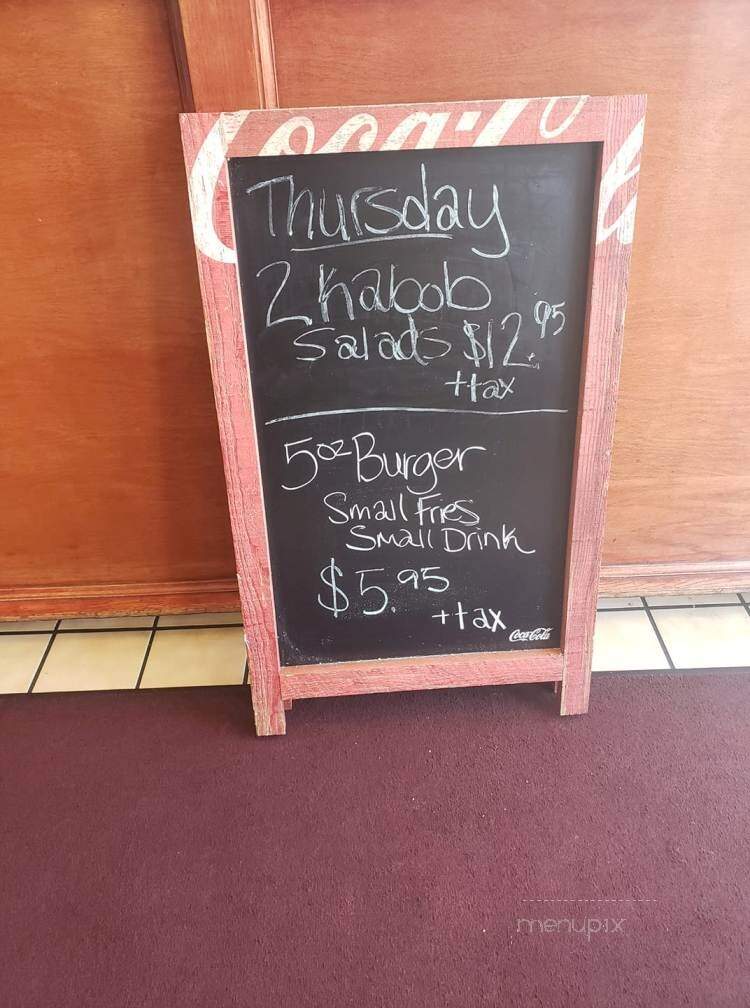 Coca-Cola
Thursday
2 Kabob
Salads $12.95
+tax
5oz Burger
Small Fries
Small Drink
$5.95
+tax
Coca-Cola
menupix